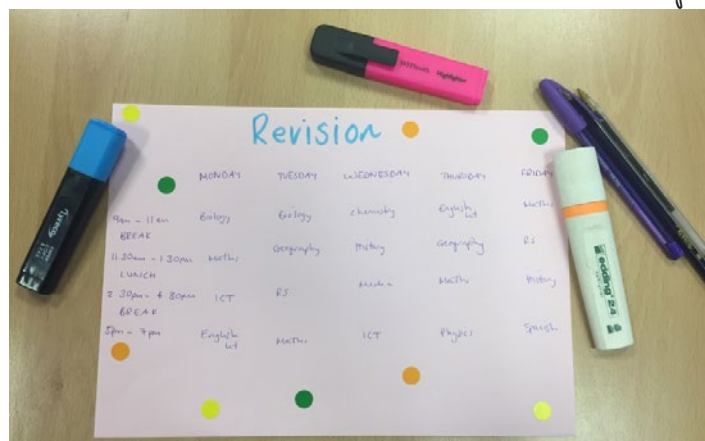 Revision
MONDAY TUESDAY WEDNESDAY THURSDAY FRIDAY
9am - 11am Biology Biology Chemistry English Lit Maths
BREAK
11 30am - 1 30pm Maths Geography History Geography RS
LUNCH
2 30pm - 4 30pm ICT RS Media Maths History
BREAK
5pm - 7pm English Lit Maths ICT Physics Spanish
Highlighter
edding 24